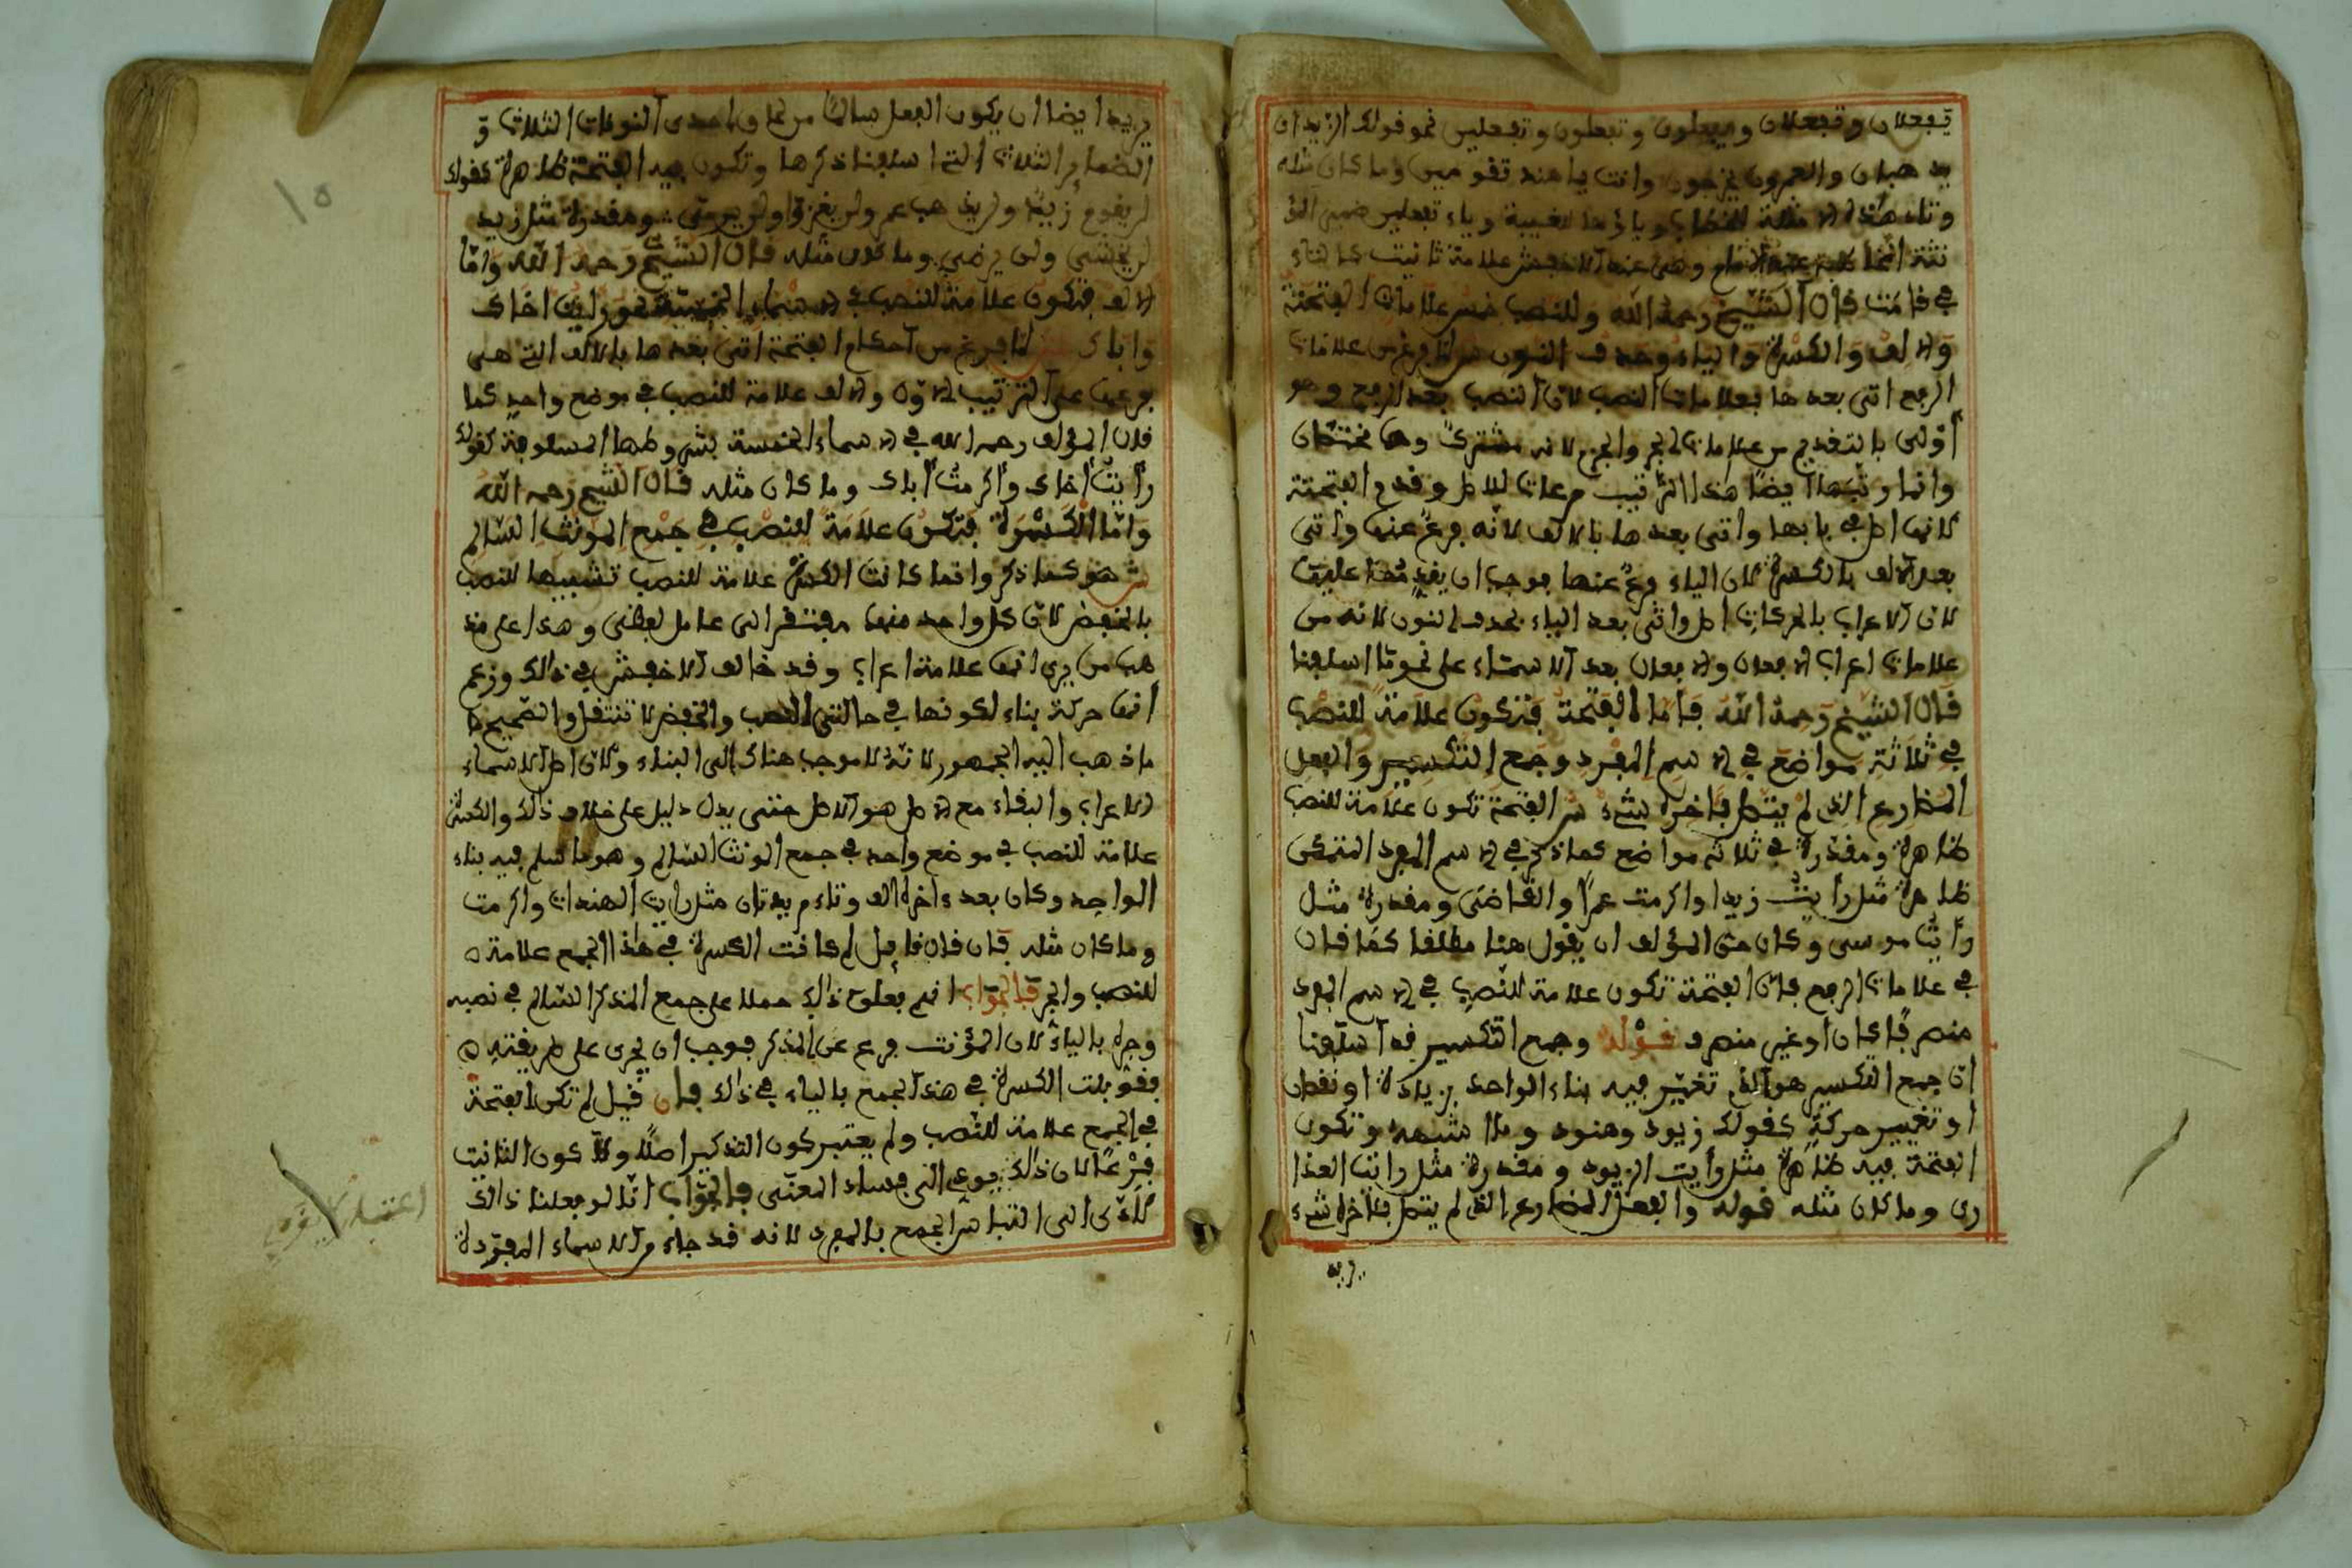 يفعلان وتفعلان ويفعلون وتفعلون وتفعلين نحو قولك الزيدان
يذهبان والعمرون يخرجون وانت يا هند تقومين وما كان مثله
وتاء هذه الامثلة للخطاب وياؤها للغيبة وياء تفعلين ضمير المؤ
نثة المخاطبة عند الامام وهى عند الاخفش علامة تانيث كالتاء
في قامت قال الشيخ رحمه الله وللنصب خمس علامات الفتحة
والالف والكسرة والياء وحذف النون ش لما فرغ من علامات
الرفع اتى بعدها بعلامات النصب لان النصب بعد الرفع وهو
أولى بالتقديم من علامات الجر والجزم لانه مشترك وهما مختصان
وانما رتبها ايضا هذا الترتيب مرعات للاصل وقدم الفتحة
لانها اصل في بابها واتى بعدها بالالف لانه فرع عنها واتى
بعد الالف بالكسرة لان الياء فرع عنها فوجب ان يقدمها عليها
لان الاعراب بالحركات اصل واتى بعد الياء بحذف النون لانه من
علامات اعراب الافعال والافعال بعد الاسماء على نحو ما اسلفنا
قال الشيخ رحمه الله فاما الفتحة فتكون علامة للنصب
في ثلاثة مواضع في الاسم المفرد وجمع التكسير والفعل
المضارع الذي لم يتصل بآخره شيء ش الفتحة تكون علامة للنصب
ظاهرة ومقدرة في ثلاثة مواضع كما ذكر في الاسم المفرد المتمكن
ظاهرة مثل رأيت زيدا واكرمت عمرا والقاضى ومقدرة مثل
رأيت موسى وكان حق المؤلف ان يقول هنا مطلقا كما قال
في علامات الرفع فان الفتحة تكون علامة للنصب في الاسم المفرد
منصرفا كان او غير منصرف قوله وجمع التكسير قد اسلفنا
ان جمع التكسير هو الذي تغير فيه بناء الواحد بزيادة او نقصان
او تغيير حركة كقولك زيود وهنود وما اشبهه وتكون
الفتحة فيه ظاهرة مثل رأيت الزيود ومقدرة مثل رايت العذا
رى وما كان مثله قوله والفعل المضارع الذي لم يتصل بآخره شيء
يريد
يريد ايضا ان يكون الفعل سالما من لحاق احدى النونات الثلاث و
الضماير الثلاث التى اسلفنا ذكرها وتكون فيه الفتحة ظاهرة كقولك
لن يقوم زيد ولن يذهب عمر ولن يغزو ولن يرمي ومقدرة مثل زيد
لن يخشى ولن يرضى وما كان مثله قال الشيخ رحمه الله واما
الالف فتكون علامة للنصب في الاسماء الخمسة نحو رايت اخاك
واباك ش لما فرغ من احكام الفتحة اتى بعدها بالالف التى هى
فرعها على الترتيب الاول والالف علامة للنصب في موضع واحد كما
قال المؤلف رحمه الله في الاسماء الخمسة بشروطها المسلوفة كقولك
رأيت أخاك وأكرمت أباك وما كان مثله قال الشيخ رحمه الله
واما الكسرة فتكون علامة للنصب في جمع المؤنث السالم
ش هو كما ذكر وانما كانت الكسرة علامة للنصب تشبيها للنصب
بالخفض لان كل واحد منهما مفتقر الى عامل لفظى وهذا على مذ
هب من يرى انها علامة اعراب وقد خالف الاخفش في ذالك وزعم
أنها حركة بناء لكونها في حالتى النصب والخفض لا تنتقل والصحيح ما
ما ذهب اليه الجمهور لانه لا موجب هناك الى البناء ولان اصل الاسماء
الاعراب والبقاء مع الاصل هو الاصل حتى يدل دليل على خلاف ذلك والكسرة
علامة للنصب في موضع واحد في جمع المونث السالم وهو ما سلم فيه بناء
الواحد وكان بعد ءاخره الف وتاء مزيدتان مثل رايت الهندات واكرمت
وما كان مثله قال فان قايل لم كانت الكسرة في هذا الجمع علامة
للنصب والجر فالجواب انهم فعلوا ذالك حملا على جمع المذكر السالم في نصبه
وجره بالياء لان المؤنث فرع عن المذكر فوجب ان يجرى على طريقته
فقوبلت الكسرة في هذا الجمع بالياء في ذالك فان قيل لم تكن الفتحة
في الجمع علامة للنصب ولم يعتبر كون التذكير اصلا ولا كون التانيث
فرعا لان ذالك يودى الى فساد المعنى فالجواب انا لو فعلنا ذالك
لادى الى التباس الجمع بالمفرد لانه قد جاء من الاسماء المفردة
١٥